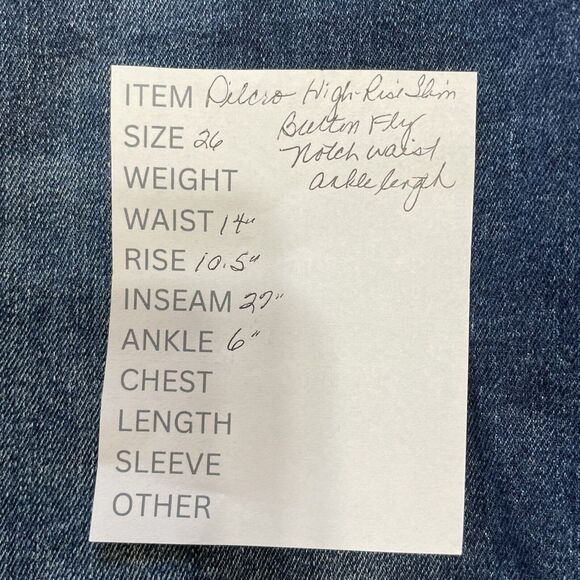 ITEM Pilcro High-Rise Slim
SIZE 26 Button Fly
Notch waist
WEIGHT ankle length
WAIST 14"
RISE 10.5"
INSEAM 27"
ANKLE 6"
CHEST
LENGTH
SLEEVE
OTHER